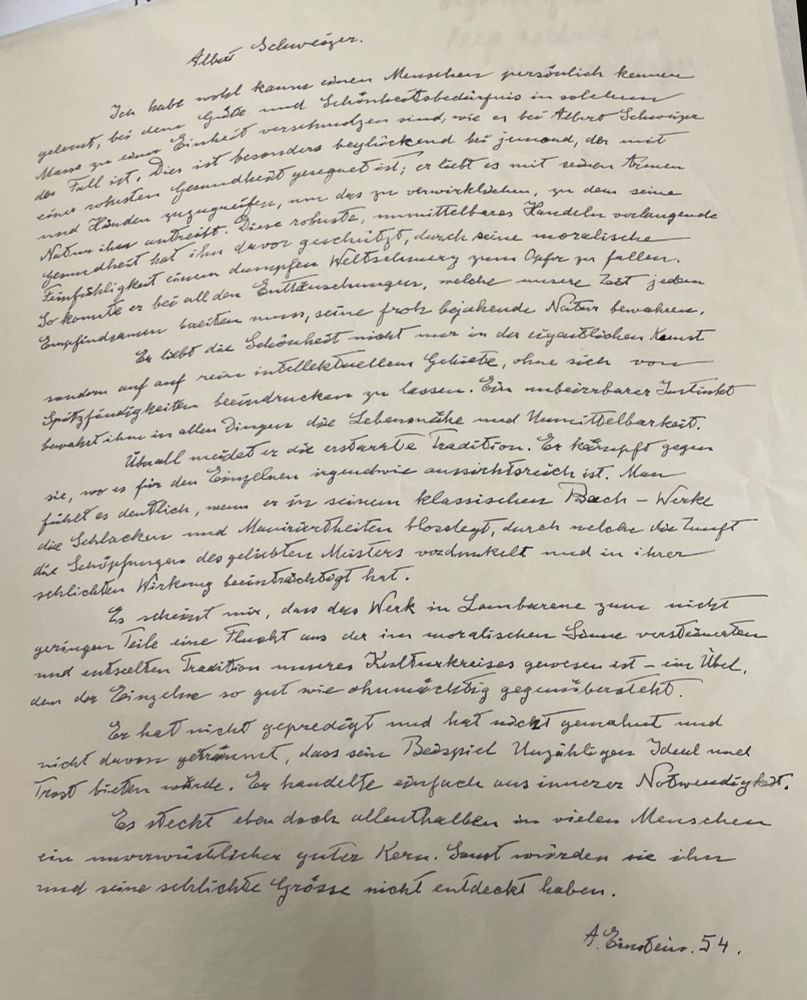 Albert Schweizer.
Ich habe wohl kaum einen Menschen persönlich kennen
gelernt, bei dem Güte und Schönheitsbedürfnis in solchem
Masse zu einer Einheit verschmolzen sind, wie es bei Albert Schweizer
der Fall ist. Dies ist besonders beglückend bei jemand, der mit
einer robusten Gesundheit gesegnet ist; er liebt es mit seinen Armen
und Händen zuzugreifen, um das zu verwirklichen, zu dem seine
Natur ihn antreibt. Diese robuste, unmittelbares Handeln verlangende
Gesundheit hat ihn davor geschützt, durch seine moralische
Feinfühligkeit einem dumpfen Weltschmerz zum Opfer zu fallen.
So konnte er bei all den Enttäuschungen, welche unsere Zeit jedem
Empfindsamen bereiten muss, seine froh bejahende Natur bewahren.
Er liebt die Schönheit nicht nur in der eigentlichen Kunst
sondern auf auf rein intellektuellem Gebiete, ohne sich von
Spitzfindigkeiten beeindrucken zu lassen. Ein unbeirrbarer Instinkt
bewahrt ihm in allen Dingen die Lebensnähe und Unmittelbarkeit.
Überall meidet er die erstarrte Tradition. Er kämpft gegen
sie, wo es für den Einzelnen irgendwie aussichtsreich ist. Man
fühlt es deutlich, wenn er in seinem klassischen Bach - Werke
die Schlacken und Manieriertheiten blosslegt, durch welche die Zunft
die Schöpfungen des geliebten Meisters verdunkelt und in ihrer
schlichten Wirkung beeinträchtigt hat.
Es scheint mir, dass das Werk in Lambarene zum nicht
geringen Teile eine Flucht aus der im moralischen Sinne versteinerten
und entseelten Tradition unseres Kulturkreises gewesen ist - ein Übel,
dem der Einzelne so gut wie ohnmächtig gegenübersteht.
Er hat nicht gepredigt und hat nicht gemahnt und
nicht davon geträumt, dass sein Beispiel Unzähligen Ideal und
Trost bieten würde. Er handelte einfach aus innerer Notwendigkeit.
Es steckt eben doch allenthalben in vielen Menschen
ein unverwüstlicher guter Kern. Sonst würden sie ihn
und seine schlichte Grösse nicht entdeckt haben.
A. Einstein. 54.